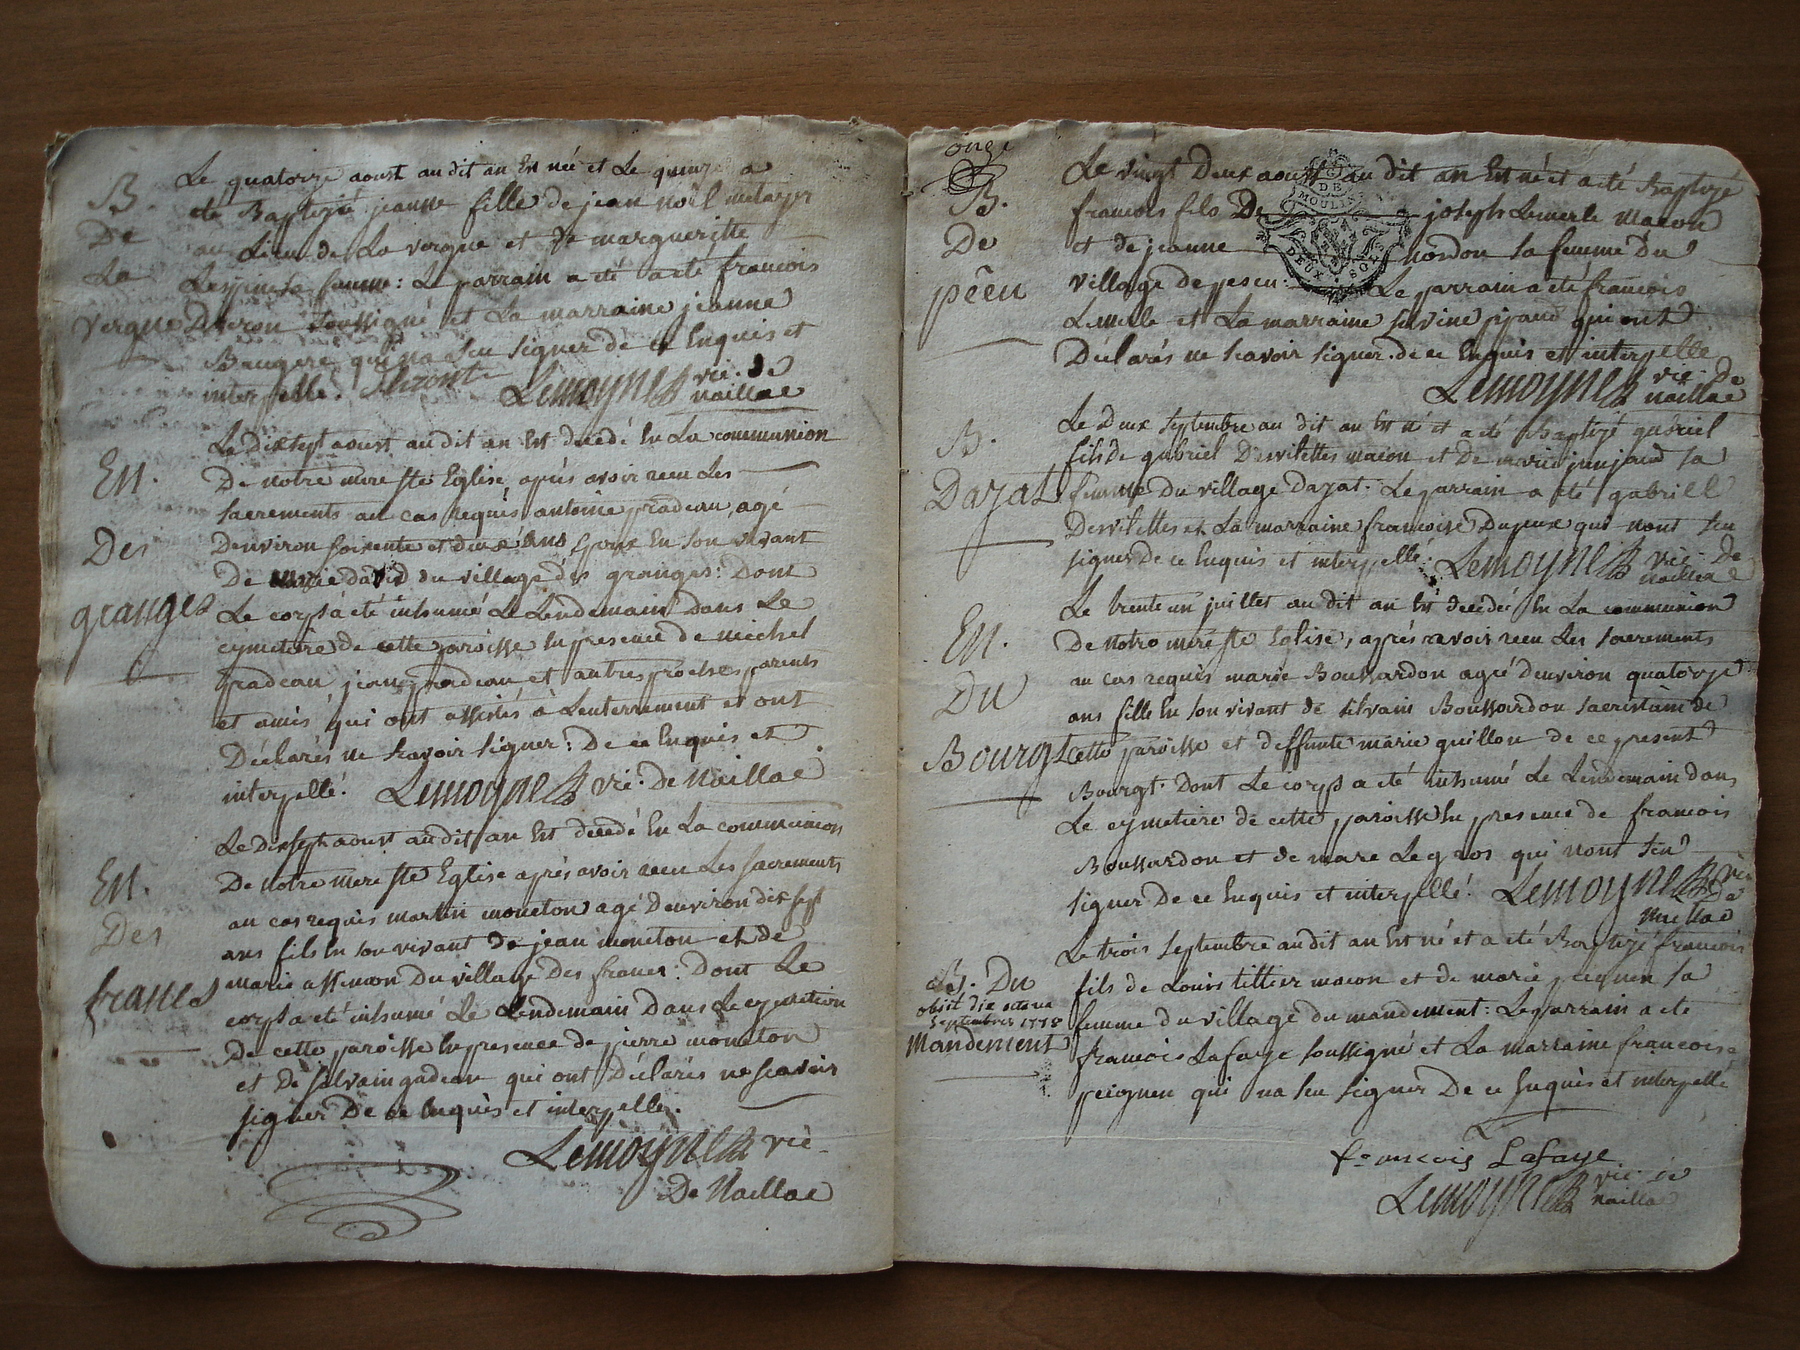 B.
De
La
vergne
Le quatorze aoust au dit an Est née et Le quinze a
été Baptizée jeanne fille de jean noël metayer
au Lieu de La vergne et de margueritte
Lespine sa femme: Le parrain a été a été francois
soussigné et La marraine jeanne
Baugere qui na seu signer de ce Enquis et
interpelle. Lemoyne vic. de
naillac
En.
Des
granges
Le dixsept aoust au dit an Est decedé En La communion
De notre mere ste Eglise après avoir receu Les
sacrements au cas requis antoine pradeau, agé
Denviron soixente et deux ans Epoux En son vivant
De marie david du village des granges: Dont
Le corps a été inhumé Le Lendemain Dans Le
cymetiere de cette paroisse En presence de michel
pradeau jean pradeau et autres proches parents
et amis qui ont assistés à Lenterrement et ont
Déclarés ne scavoir signer: De ce Enquis et
interpellé. Lemoyne vic. de Naillac
En.
Des
francs
Le Dixsept aoust au dit an Est decedé En La communion
De notre mere ste Eglise après avoir receu Les sacrements
au cas requis martin moneton agé Denviron dix sept
ans fils En son vivant de jean moneton et de
marie Du village Des francs: Dont Le
corps a été inhumé Le Lendemain Dans Le cymetiere
De cette paroisse En presence de pierre moneton
et De silvain gadeau qui ont Déclarés ne scavoir
signer De ce Enquis et interpelle.
Lemoyne vic.
De Naillac
onze
B.
De
pêeu
Le vingt Deux aoust au dit an Est né et a été Baptizé
francois fils De joseph Lemerle macon
et de jeanne nordon sa femme Du
village de peseu: Le parrain a été francois
Lemerle et La marraine silvine pijaud qui ont
Déclarés ne scavoir signer. de ce Enquis et interpelle
Lemoyne vic. de
naillac
G. DE
MOULINS
DEUX SOLS
B.
Dazat
Le Deux septembre au dit an Est né et a été Baptizé gabriel
fils de gabriel Desvilettes macon et De marie junjaud sa
femme Du village Dazat. Le parrain a été gabriell
Desvilettes et La marraine francoise Dupeux qui nont seu
signer de ce Enquis et interpellé. Lemoyne vic. de
naillac
En.
Du
Bourgt
Le trente un juillet au dit an Est decedée En La communion
De notre mere ste Eglise, après avoir receu Les sacrements
au cas requis marie Boussardon agée denviron quatorze
ans fille En son vivant de silvain Boussardon sacristain de
cette paroisse et deffunte marie guillon de ce present
Bourgt. Dont Le corps a été inhumé Le Lendemain dans
Le cymetiere de cette paroisse En presence de francois
Boussardon et de marc Legros qui nont seu
signer De ce Enquis et interpellé. Lemoyne vic.
De
naillac
B. Du
obiit die octava
septembris 1778
Mandement
Le trois septembre au dit an Est né et a été Baptizé francois
fils de Louis tittier macon et de marie peignen sa
femme du village du mandement: Le parrain a été
francois Lafaye soussigné et La marraine francoise
peignen qui na seu signer De ce Enquis et interpellé
francois Lafaye
Lemoyne vic. de
naillac